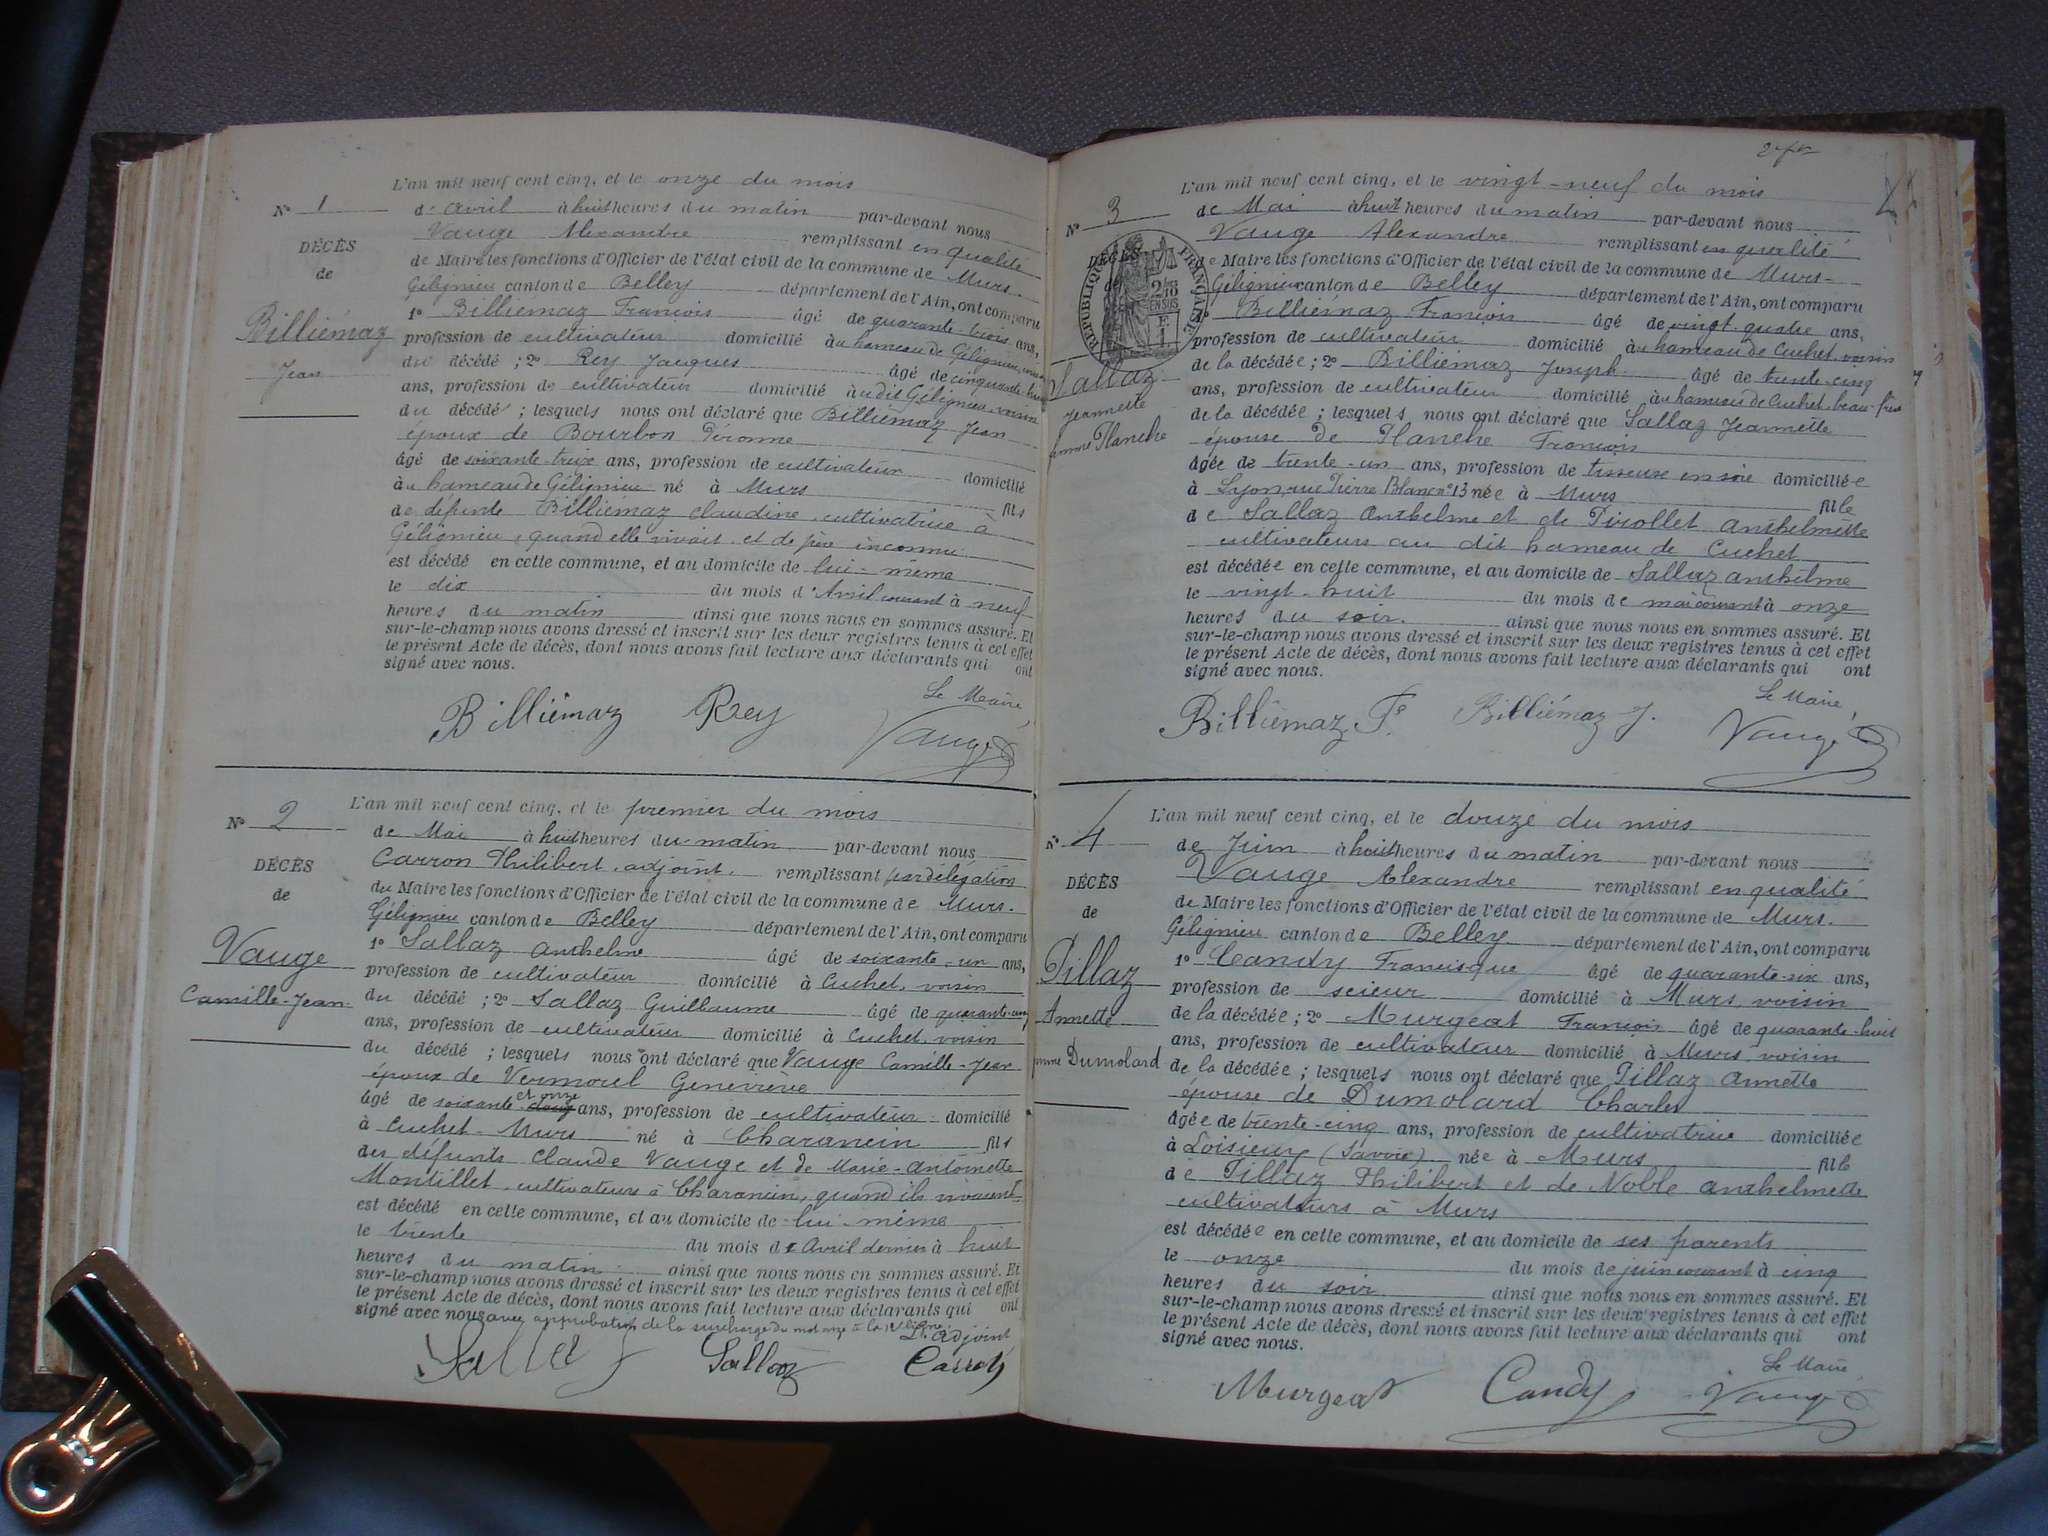 L'an mil neuf cent cinq, et le onze du mois
N° 1
de Avril à huit heures du matin par-devant nous
DÉCÈS
Vauge Alexandre remplissant en qualité
de
de Maire les fonctions d'Officier de l'état civil de la commune de Murs-
Gélignieu canton de Belley département de l'Ain, ont comparu
Billiémaz
1° Billiémaz François âgé de quarante-trois ans,
Jean
profession de cultivateur domicilié à u hameau de Gélignieu,
du décédé ; 2° Rey Jacques âgé de cinquante-
ans, profession de cultivateur domicilié à u dit Gélignieu, voisin
du décédé ; lesquels nous ont déclaré que Billiémaz Jean
époux de Bourbon Péronne
âgé de soixante-treize ans, profession de cultivateur domicilié
à u hameau de Gélignieu né à Murs fils
de défunte Billiémaz Claudine, cultivatrice à
Gélignieu, quand elle vivait et de père inconnu
est décédé en cette commune, et au domicile de lui-même
le dix du mois d'Avril courant à neuf
heures du matin ainsi que nous nous en sommes assuré. Et
sur-le-champ nous avons dressé et inscrit sur les deux registres tenus à cet effet
le présent Acte de décès, dont nous avons fait lecture aux déclarants qui ont
signé avec nous.
Le Maire,
Billiémaz Rey Vauge
L'an mil neuf cent cinq, et le premier du mois
N° 2
de Mai à huit heures du matin par-devant nous
DÉCÈS
Carron Philibert, adjoint, remplissant par délégation
de
du Maire les fonctions d'Officier de l'état civil de la commune de Murs-
Gélignieu canton de Belley département de l'Ain, ont comparu
Vauge
1° Sallaz Anthelme âgé de soixante-un ans,
Camille-Jean
profession de cultivateur domicilié à Cuchet, voisin
du décédé ; 2° Sallaz Guillaume âgé de quarante-cinq
ans, profession de cultivateur domicilié à Cuchet, voisin
du décédé ; lesquels nous ont déclaré que Vauge Camille-Jean
époux de Vermorel Geneviève
âgé de soixante et onze ans, profession de cultivateur domicilié
à Cuchet-Murs né à Charancin fils
des défunts Claude Vauge et de Marie-Antoinette
Montillet, cultivateurs à Charancin, quand ils vivaient
est décédé en cette commune, et au domicile de lui-même
le trente du mois de Avril dernier à huit
heures du matin ainsi que nous nous en sommes assuré. Et
sur-le-champ nous avons dressé et inscrit sur les deux registres tenus à cet effet
le présent Acte de décès, dont nous avons fait lecture aux déclarants qui ont
signé avec nous avec approbation de la surcharge du mot onze à la ligne.
L'adjoint
Sallaz Sallaz Carron
L'an mil neuf cent cinq, et le vingt-neuf du mois
N° 3
de Mai à huit heures du matin par-devant nous
DÉCÈS
RÉPUBLIQUE FRANÇAISE
Vauge Alexandre remplissant en qualité
de Maire les fonctions d'Officier de l'état civil de la commune de Murs-
Gélignieu canton de Belley département de l'Ain, ont comparu
1° Billiémaz François âgé de vingt-quatre ans,
Sallaz
Jeannette
femme Planche
profession de cultivateur domicilié à u hameau de Cuchet, voisin
de la décédée ; 2° Billiémaz Joseph âgé de trente-cinq
ans, profession de cultivateur domicilié à u hameau de Cuchet, beau-frère
de la décédée ; lesquels nous ont déclaré que Sallaz Jeannette
épouse de Planche François
âgée de trente-un ans, profession de tisseuse en soie domiciliée
à Lyon, rue Pierre Blanc n° 13 née à Murs fille
de Sallaz Anthelme et de Pirollet Anthelmette
cultivateurs au dit hameau de Cuchet
est décédée en cette commune, et au domicile de Sallaz Anthelme
le vingt-huit du mois de mai courant à onze
heures du soir. ainsi que nous nous en sommes assuré. Et
sur-le-champ nous avons dressé et inscrit sur les deux registres tenus à cet effet
le présent Acte de décès, dont nous avons fait lecture aux déclarants qui ont
signé avec nous.
Le Maire,
Billiémaz F. Billiémaz J. Vauge
L'an mil neuf cent cinq, et le douze du mois
N° 4
de Juin à huit heures du matin par-devant nous
DÉCÈS
Vauge Alexandre remplissant en qualité
de
de Maire les fonctions d'Officier de l'état civil de la commune de Murs-
Gélignieu canton de Belley département de l'Ain, ont comparu
Pillaz
1° Candy Francisque âgé de quarante-six ans,
Annette
femme Dumolard
profession de scieur domicilié à Murs, voisin
de la décédée ; 2° Murgeat François âgé de quarante-huit
ans, profession de cultivateur domicilié à Murs, voisin
de la décédée ; lesquels nous ont déclaré que Pillaz Annette
épouse de Dumolard Charles
âgée de trente-cinq ans, profession de cultivatrice domiciliée
à Loisieux (Savoie) née à Murs fille
de Pillaz Philibert et de Noble Anthelmette
cultivateurs à Murs
est décédée en cette commune, et au domicile de ses parents
le onze du mois de juin courant à cinq
heures du soir ainsi que nous nous en sommes assuré. Et
sur-le-champ nous avons dressé et inscrit sur les deux registres tenus à cet effet
le présent Acte de décès, dont nous avons fait lecture aux déclarants qui ont
signé avec nous.
Le Maire,
Murgeat Candy Vauge